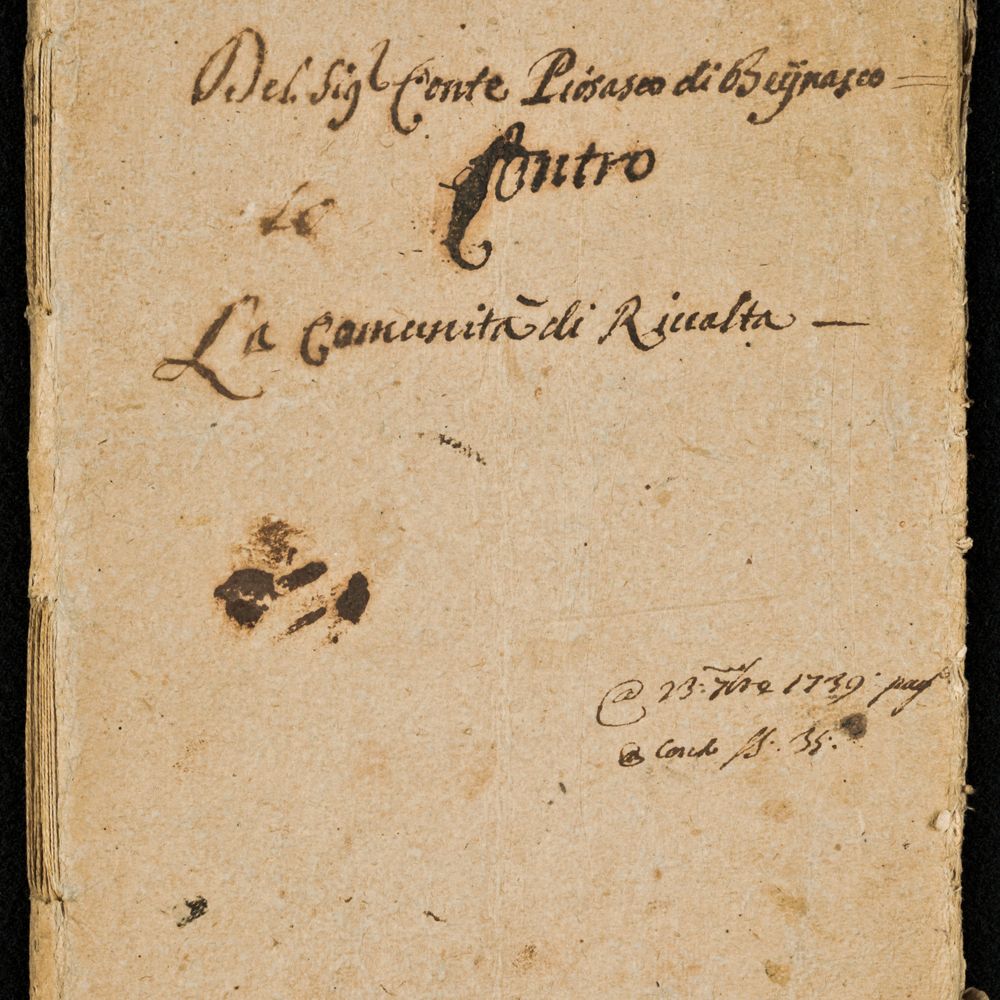 Del. Sigl Conte Piosasco di Beÿnasco
Contro
La Comunità di Riualta
@ 23: 7bre 1739: pag
a Concl ff. 35: